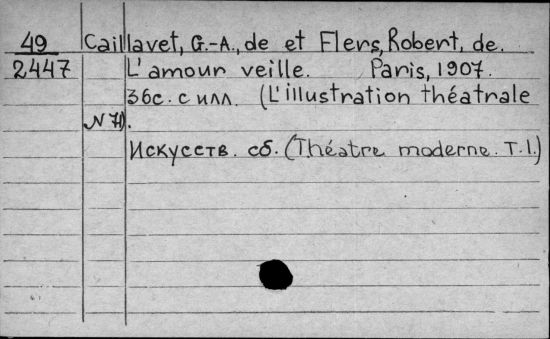 49 Caillavet, G.-A., de et Flers, Robert, de.
2447 L'amour veille. Paris, 1907.
36с. с илл. (L'illustration théatrale
N 71).
Искусств. сб. (Théatre moderne. T.1.)